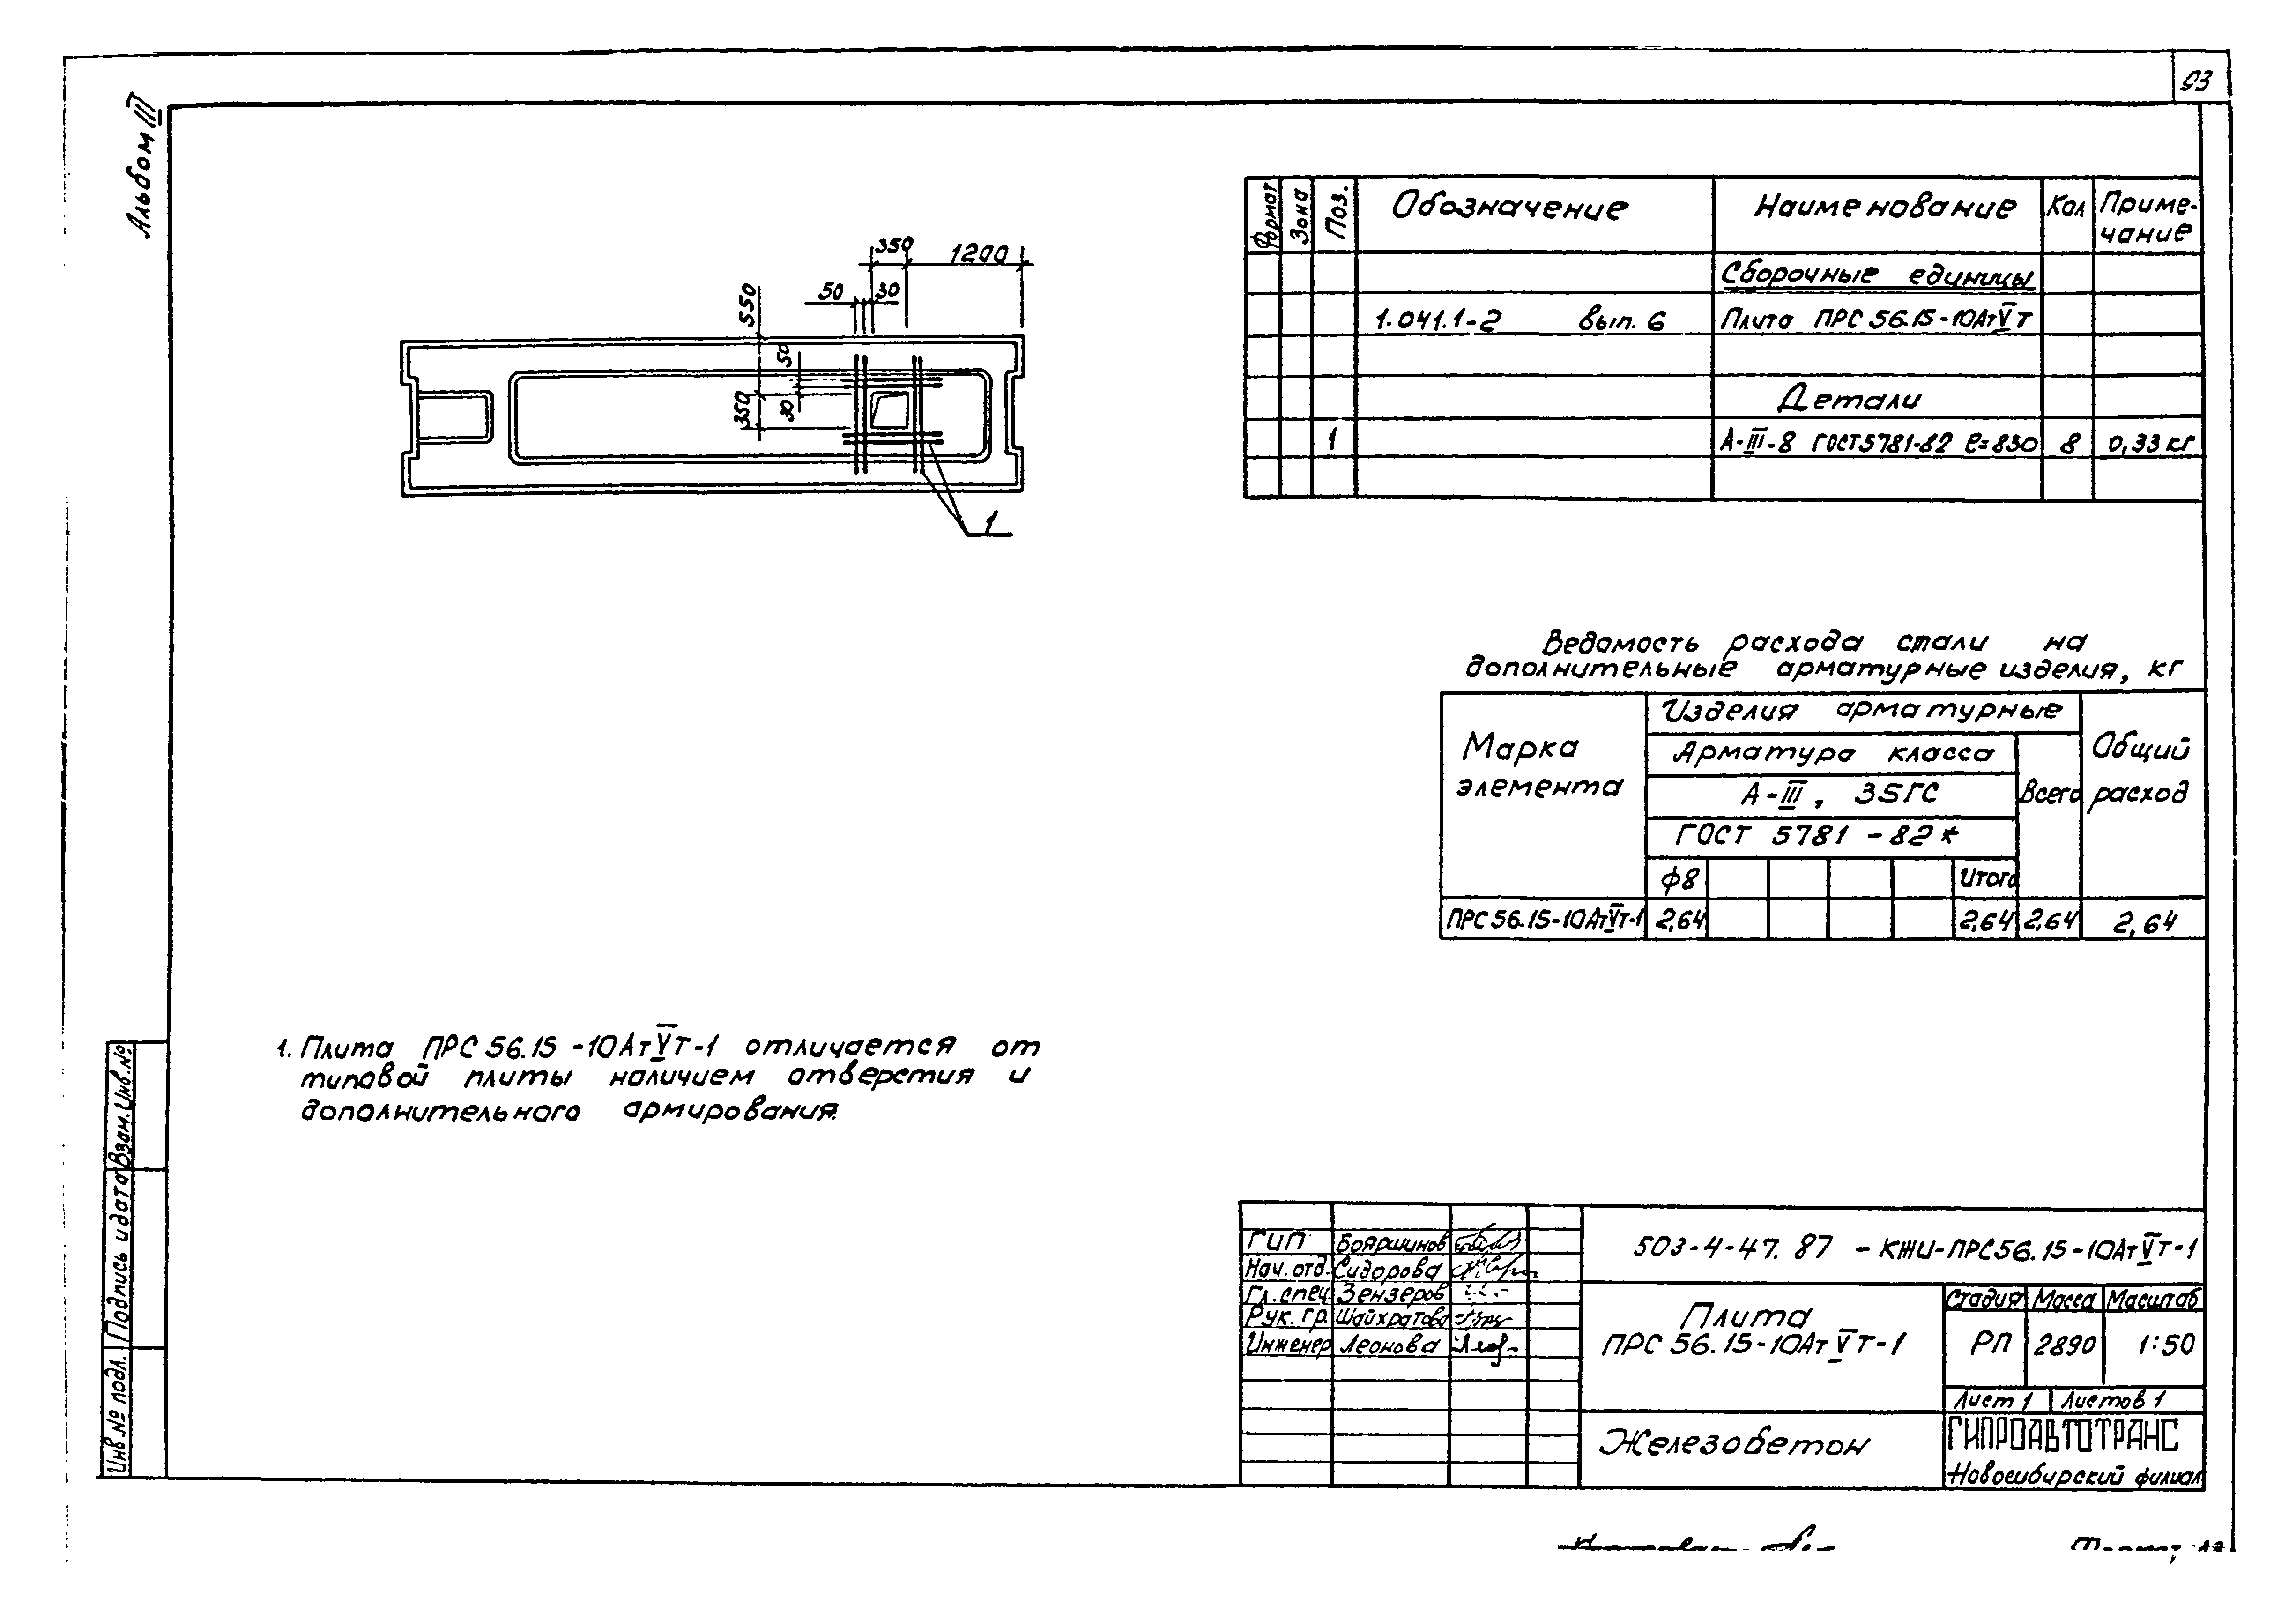 93
Альбом III
350
1200
50
30
550
50
350
30
1
Формат
Зона
Поз.
Обозначение
Наименование
Кол
Приме-
чание
Сборочные единицы
1.041.1-2 вып. 6
Плита ПРС 56.15-10АтVТ
Детали
1
А-III-8 ГОСТ5781-82 ℓ=830
8
0,33 кг
Ведомость расхода стали на
дополнительные арматурные изделия, кг
Марка
элемента
Изделия арматурные
Арматура класса
А-III, 35ГС
ГОСТ 5781-82*
Всего
Общий
расход
ф8
Итого
ПРС 56.15-10АтVТ-1
2,64
2,64
2,64
2,64
1. Плита ПРС 56.15-10АтVТ-1 отличается от
типовой плиты наличием отверстия и
дополнительного армирования.
Взам.Инв.№
Подпись и дата
Инв № подл.
ГИП Бояршинов
Нач. отд. Сидорова
Гл. спец. Зензеров
Рук. гр. Шайхратова
Инженер Леонова
503-4-47.87 -КЖИ-ПРС56.15-10АтVТ-1
Плита
ПРС 56.15-10АтVТ-1
Стадия
Масса
Масштаб
РП
2890
1:50
Лист 1
Листов 1
Железобетон
ГИПРОАВТОТРАНС
Новосибирский филиал